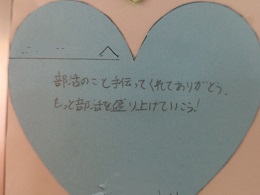 へ
部活のこと手伝ってくれてありがとう。
もっと部活を盛り上げていこう!